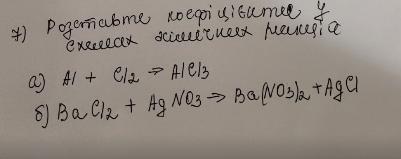 7) Розставте коефіцієнти у
схемах хімічних реакцій
а) Al + Cl2 → AlCl3
б) BaCl2 + AgNO3 → Ba(NO3)2 + AgCl